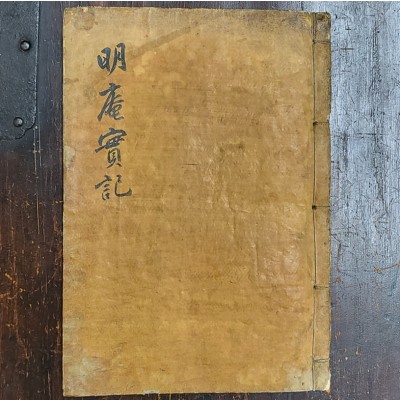 明庵實記